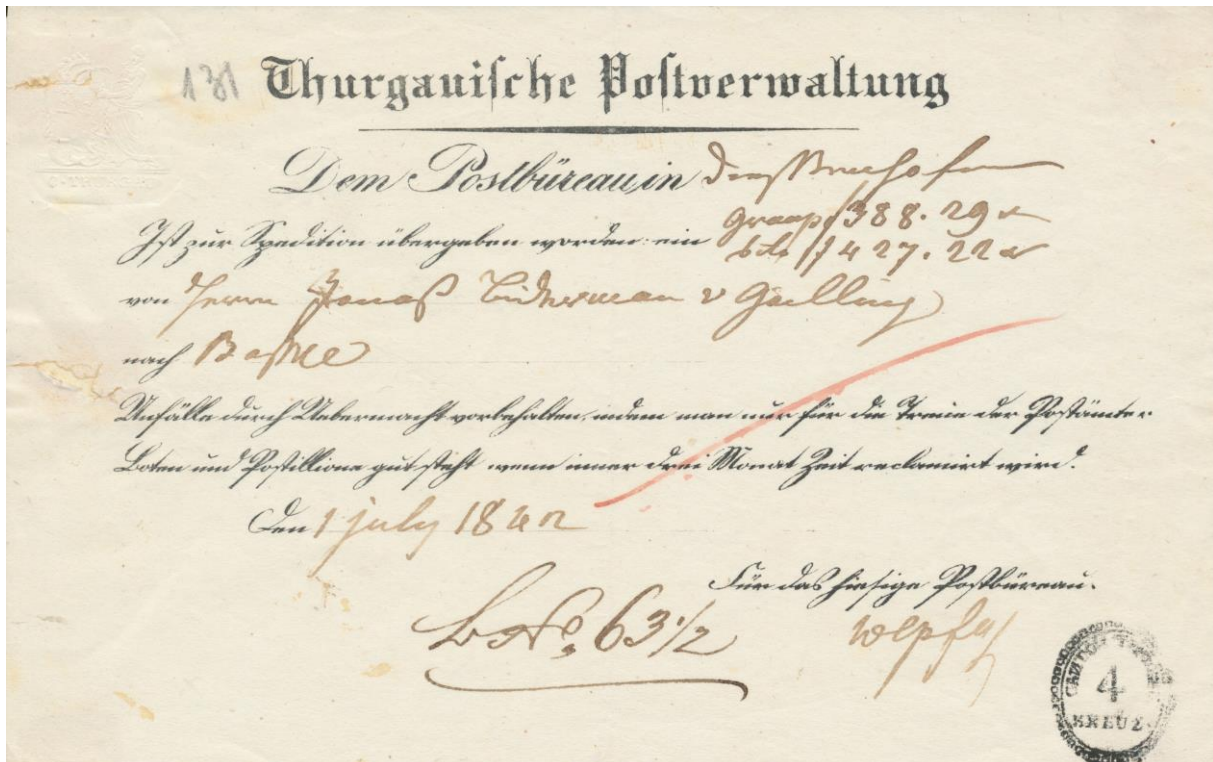 131 Thurgauische Postverwaltung
Dem Postbüreau in Diessenhofen
Ist zur Spedition übergeben worden: ein Groupp f 388. 29 x
dito f 427. 22 x
von Herrn Jonass Biderman v Gailling
nach Bassel
Unfälle durch Uebermacht vorbehalten, indem man nur für die Treue der Postämter
Boten und Postillione gut steht wenn inner drei Monat Zeit reclamirt wird.
Den 1 july 1842
Für das hiesige Postbüreau.
No. 63 1/2
Wepfer
CANTON
4
KREUZ.